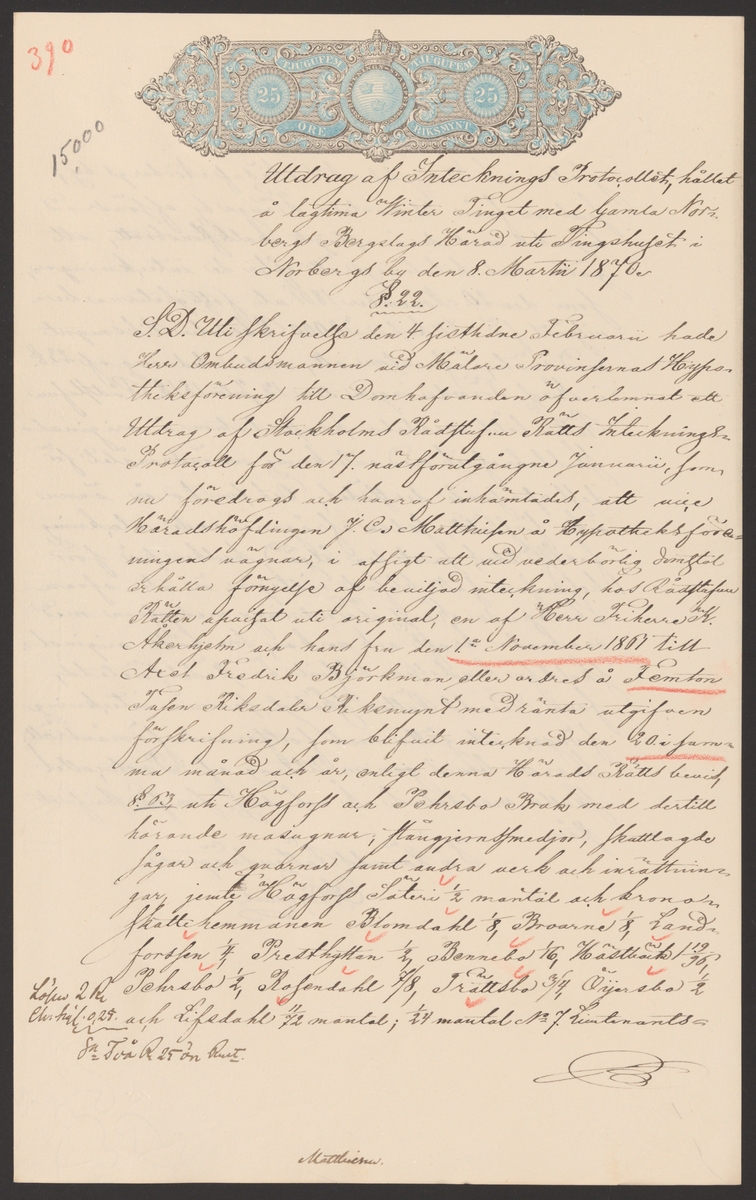 390
15,000
TJUGUFEM TJUGUFEM
25 25
ÖRE RIKSMYNT
Utdrag af Intecknings Protocollet, hållet
å lagtima Winter Tinget med Gamla Nor-
bergs Bergslags Härad uti Tingshuset i
Norbergs by den 8. Martii 1870.
§. 22.
S. D. Uti skrifvelse den 4 sistlidne Februarii hade
Herr Ombudsmannen vid Mälare Provinsernas Hypo-
theksförening till Domhafvanden öfverlemnat ett
Utdrag af Stockholms Rådstufvu Rätts Intecknings-
Protocoll för den 17. nästförutgångne Januarii, som
nu föredrogs och hvaraf inhämtades, att vice
Häradshöfdingen J. C. Matthiesen å Hypotheksföre-
ningens vägnar, i afsigt att vid vederbörlig domstol
erhålla förnyelse af beviljad inteckning, hos Rådstufvu
Rätten uppvisat uti original, en af Herr Friherre K.
Åkerhjelm och hans fru den 1:a November 1861 till
Axel Fredrik Björkman eller ordres å Femton
Tusen Riksdaler Riksmynt med ränta utgifven
förskrifning, som blifvit intecknad den 20 i sam-
ma månad och år, enligt denna Härads Rätts bevis,
§. 63, uti Högforss och Pehrsbo Bruk med dertill
hörande masugnar, stångjernssmedjor, skattlagde
sågar och qvarnar samt andra verk och inrättnin-
gar, jemte Högforss Säteri 1/2 mantal och krono-
skattehemmanen Blomdahl 1/8, Broarne 1/8, Land-
forssen 1/4, Presthyttan 1/2, Bennebo 1/6, Hästbäck 1 19/96,
Pehrsbo 1/2, Rosendahl 7/8, Trättsbo 3/4, Öijersbo 1/2
och Lifsdahl 11/72 mantal; 1/24 mantal No 7. Lieutenants-
Lösen 2 R
Char. Sig. 0,25.
Sa Två R 25 ön Rmt.
Matthiesen.